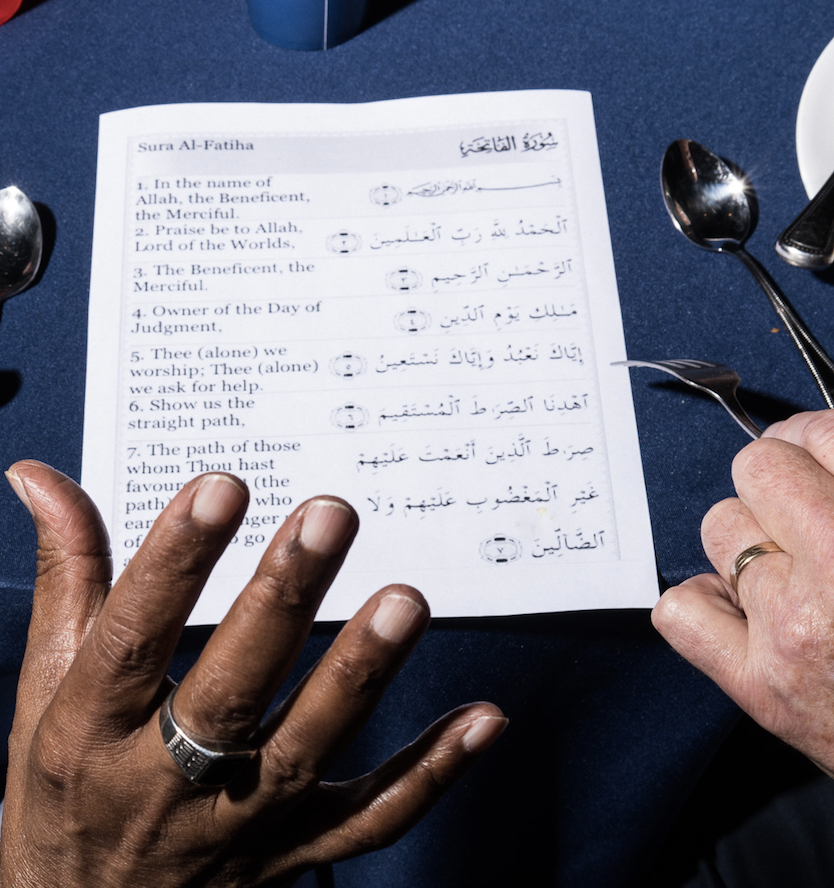 Sura Al-Fatiha سُورَةُ الفَاتِحَةِ
1. In the name of
Allah, the Beneficent,
the Merciful.
بِسْمِ ٱللَّهِ ٱلرَّحْمَـٰنِ ٱلرَّحِيمِ ١
2. Praise be to Allah,
Lord of the Worlds,
ٱلْحَمْدُ لِلَّهِ رَبِّ ٱلْعَـٰلَمِينَ ٢
3. The Beneficent, the
Merciful.
ٱلرَّحْمَـٰنِ ٱلرَّحِيمِ ٣
4. Owner of the Day of
Judgment,
مَـٰلِكِ يَوْمِ ٱلدِّينِ ٤
5. Thee (alone) we
worship; Thee (alone)
we ask for help.
إِيَّاكَ نَعْبُدُ وَإِيَّاكَ نَسْتَعِينُ ٥
6. Show us the
straight path,
ٱهْدِنَا ٱلصِّرَٰطَ ٱلْمُسْتَقِيمَ ٦
7. The path of those
whom Thou hast
(the
who
of go
صِرَٰطَ ٱلَّذِينَ أَنْعَمْتَ عَلَيْهِمْ
غَيْرِ ٱلْمَغْضُوبِ عَلَيْهِمْ وَلَا
ٱلضَّآلِّينَ ٧